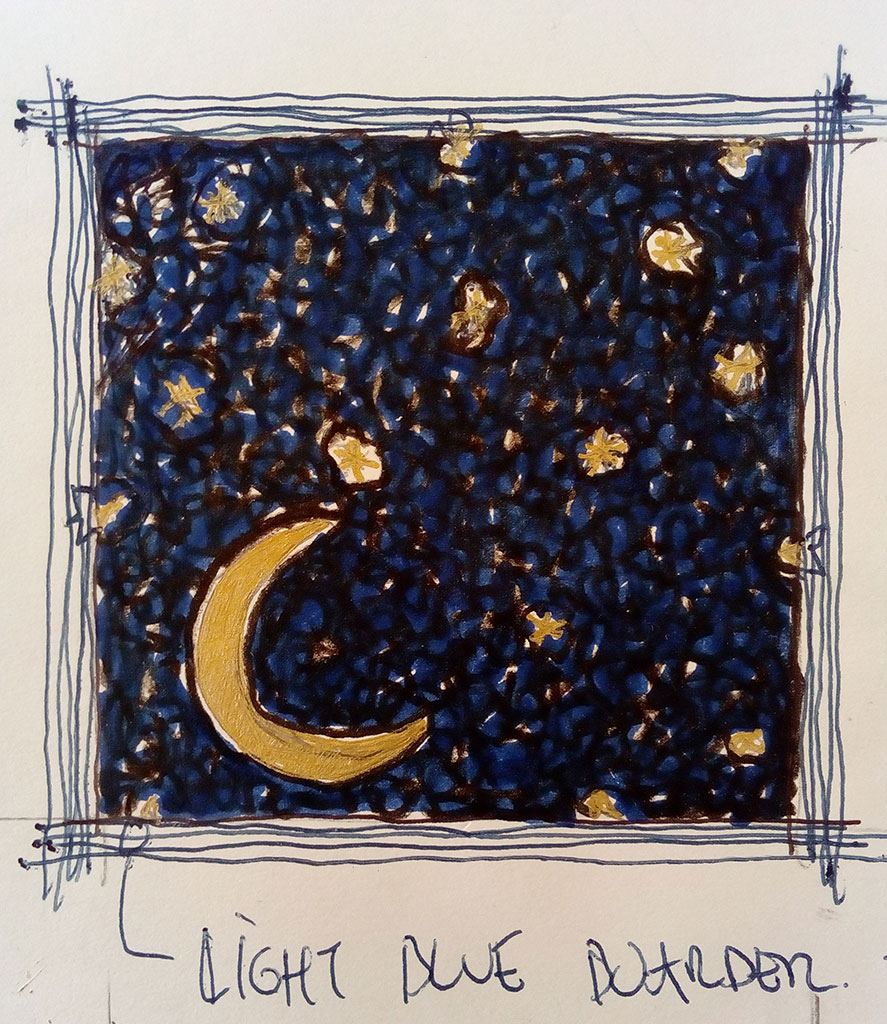 LIGHT BLUE BOARDER.